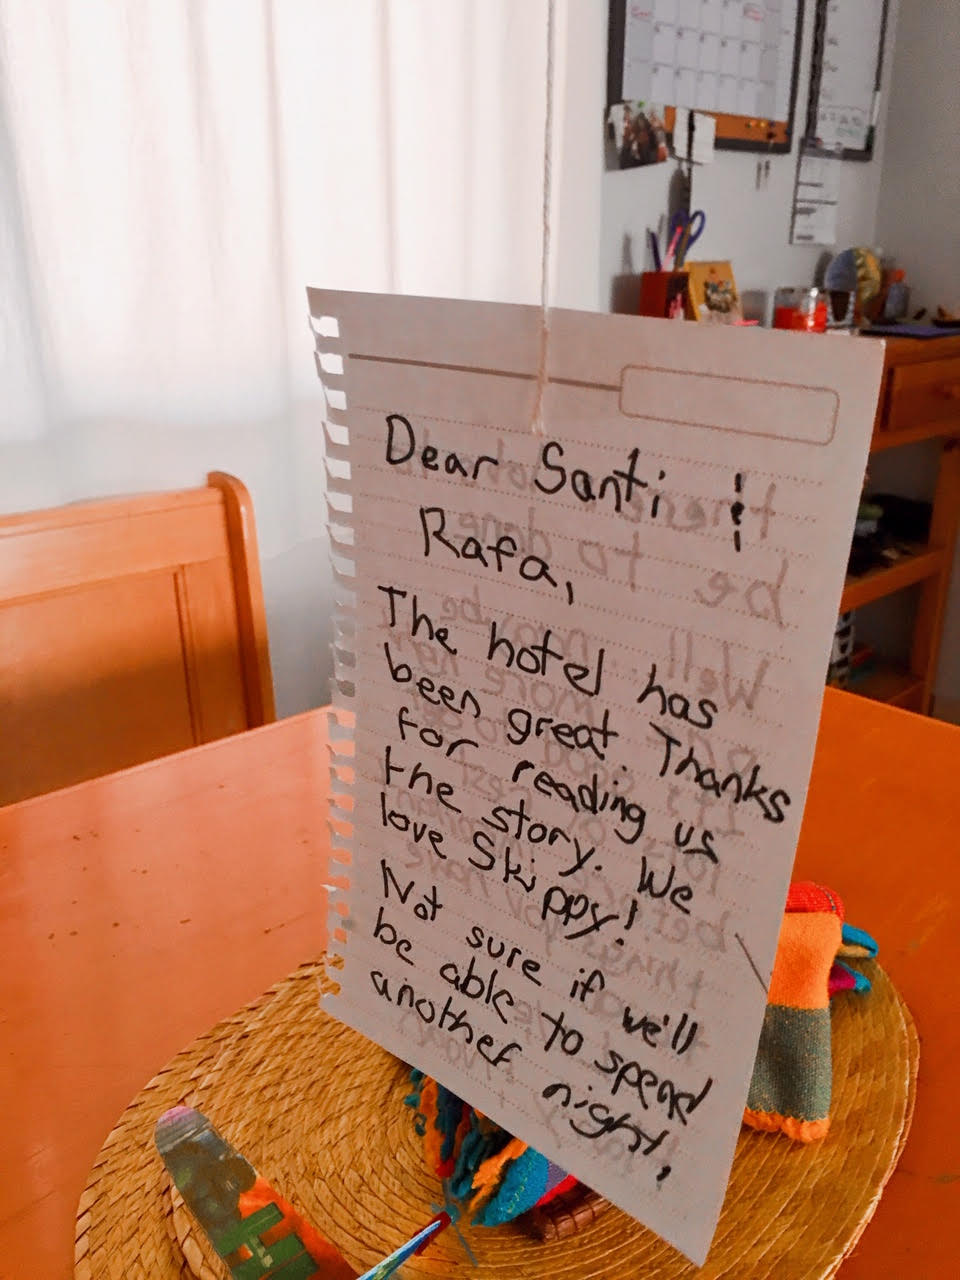 Dear Santi &
Rafa,
The hotel has
been great. Thanks
for reading us
the story. We
love Skippy!
Not sure if we'll
be able to spend
another night,